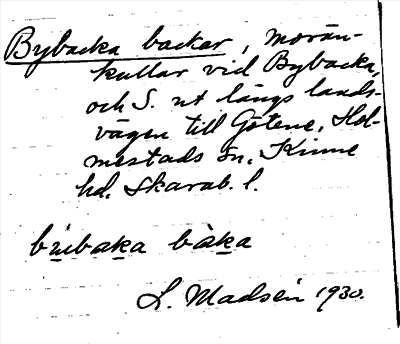 Bybacka backar, morän-
kullar vid Bybacka,
och S. ut längs lands-
vägen till Götene, Hol-
mestads sn. Kinne
hd. Skarab. l.
bu̲baka bàka
L. Madsén 1930.